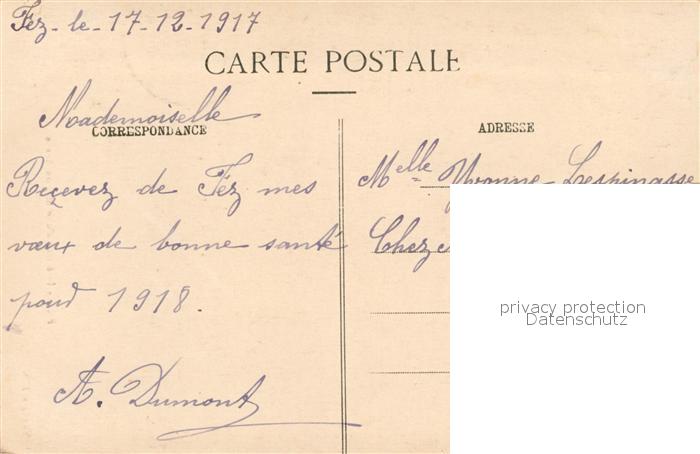 Fez - le - 17-12-1917
CARTE POSTALE
Mademoiselle
CORRESPONDANCE
Recevez de Fez mes
vœux de bonne santé
pour 1918.
A. Dumont
ADRESSE
Melle Yvonne Lespinasse
Chez
privacy protection
Datenschutz